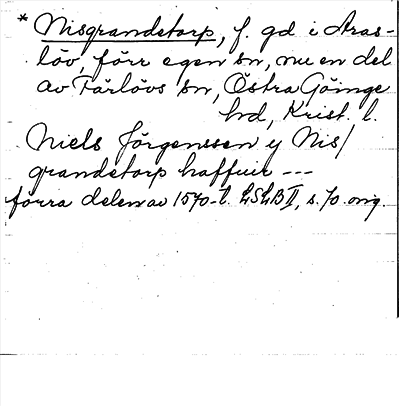 * Nisgrandetorp, f. gd i Aras-
löv, förr egen sn, nu en del
av Färlövs sn, Östra Göinge
hd, Krist. l.
Niels Jörgenssen y Nis/
grandetorp haffuir ---
förra delen av 1570-t. LSLB II, s. 70. orig.